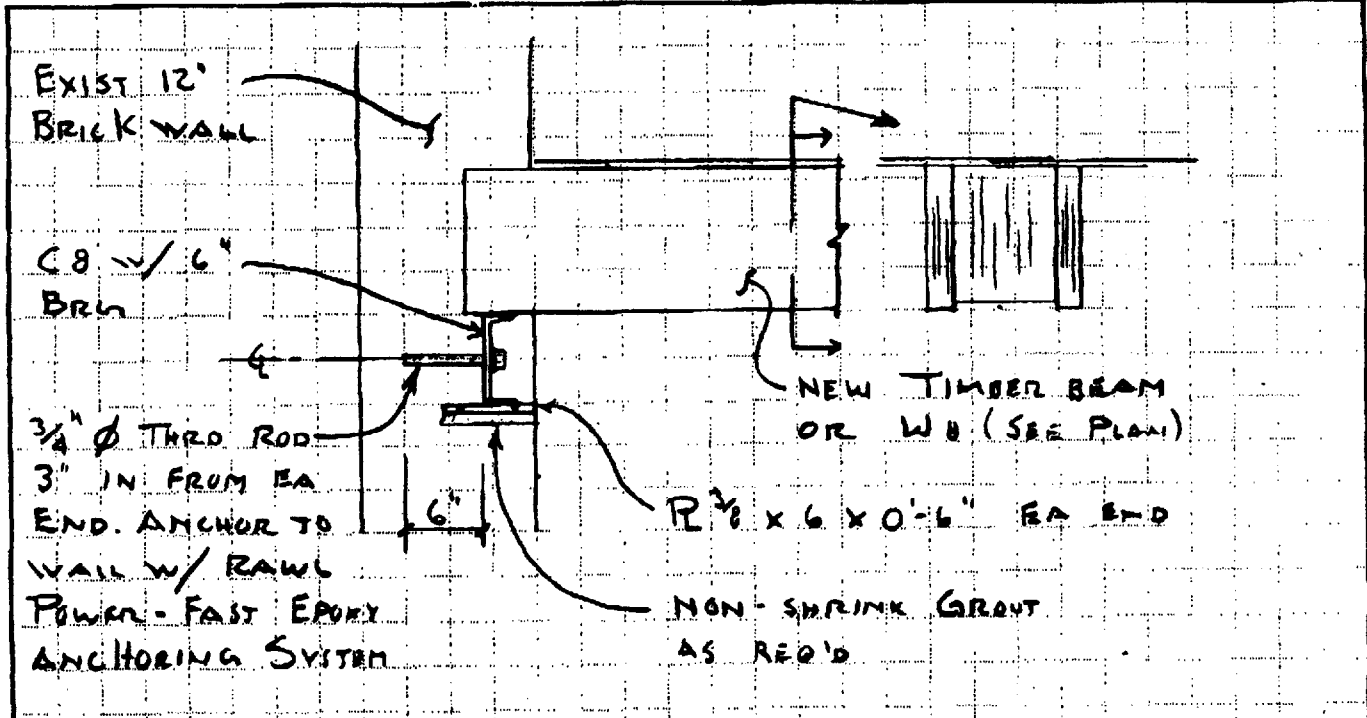 EXIST 12"
BRICK WALL
C8 W/ 6"
BRG
℄
3/4" Ø THRD ROD
3" IN FROM EA
END. ANCHOR TO
WALL W/ RAWL
POWER-FAST EPOXY
ANCHORING SYSTEM
6"
NEW TIMBER BEAM
OR W8 (SEE PLAN)
PL 3/8 x 6 x 0'-6" EA END
NON-SHRINK GROUT
AS REQ'D